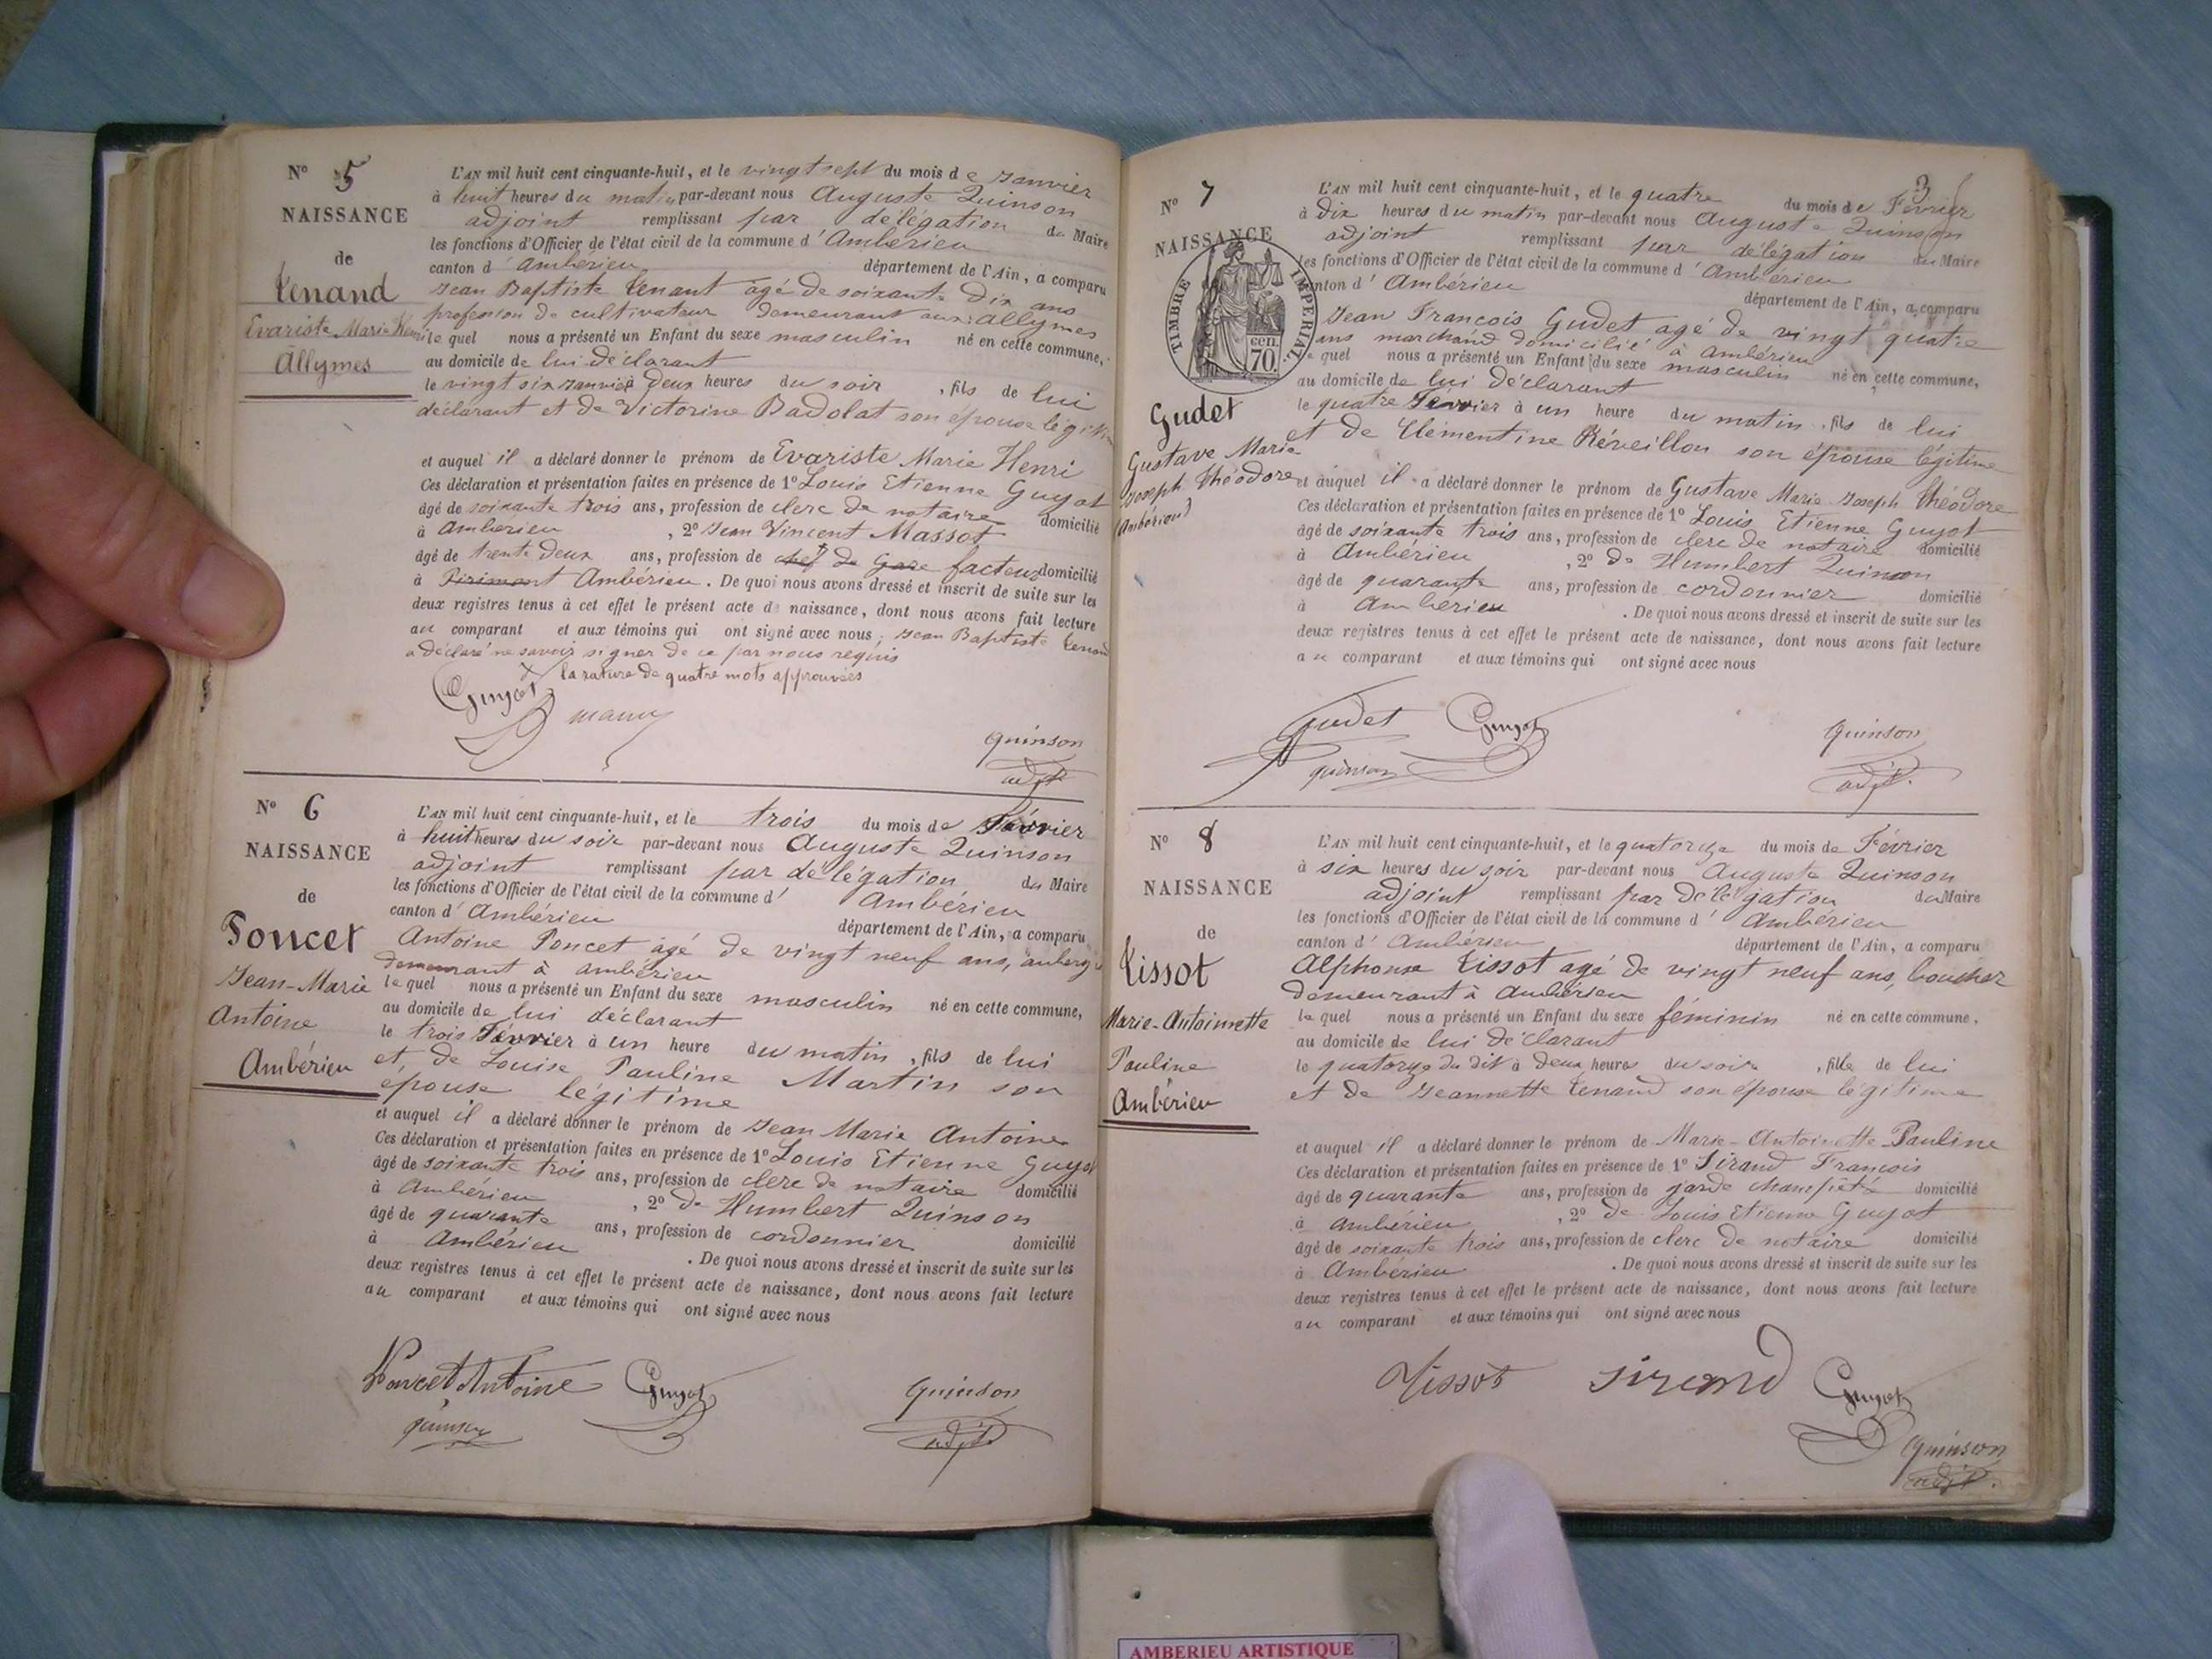 N° 5
NAISSANCE
de
Tenand
Evariste Marie Henri
Allymes
L'AN mil huit cent cinquante-huit, et le vingt sept du mois de Janvier
à huit heures du matin par-devant nous Auguste Quinson
adjoint remplissant par délégation du Maire
les fonctions d'Officier de l'état civil de la commune d'Ambérieu
canton d'Ambérieu département de l'Ain, a comparu
Jean Baptiste Tenant agé de soixante Dix ans
profession de cultivateur demeurant aux Allymes
lequel nous a présenté un Enfant du sexe masculin né en cette commune,
au domicile de lui déclarant
le vingt six Janvier à Deux heures du soir, fils de lui
déclarant et de Victorine Badolat son épouse légitime
et auquel il a déclaré donner le prénom de Evariste Marie Henri
Ces déclaration et présentation faites en présence de 1° Louis Etienne Guyot
âgé de soixante trois ans, profession de clerc de notaire domicilié
à Amberieu, 2° Jean Vincent Massot
âgé de trente deux ans, profession de chef de Gare facteur domicilié
à Pirimont Ambérieu. De quoi nous avons dressé et inscrit de suite sur les
deux registres tenus à cet effet le présent acte de naissance, dont nous avons fait lecture
au comparant et aux témoins qui ont signé avec nous, Jean Baptiste Tenand
a déclaré ne savoir signer de ce par nous requis
la rature de quatre mots approuvées
Guyot
Quinson
adjt
N° 6
NAISSANCE
de
Poncet
Jean-Marie
Antoine
Ambérieu
L'AN mil huit cent cinquante-huit, et le trois du mois de Février
à huit heures du soir par-devant nous Auguste Quinson
adjoint remplissant par délégation du Maire
les fonctions d'Officier de l'état civil de la commune d'Ambérieu
canton d'Ambérieu département de l'Ain, a comparu
Antoine Poncet agé de vingt neuf ans,
demeurant à Ambérieu
lequel nous a présenté un Enfant du sexe masculin né en cette commune,
au domicile de lui déclarant
le trois Février à un heure du matin, fils de lui
et de Louise Pauline Martin son
épouse légitime
et auquel il a déclaré donner le prénom de Jean Marie Antoine
Ces déclaration et présentation faites en présence de 1° Louis Etienne Guyot
âgé de soixante trois ans, profession de clerc de notaire domicilié
à Ambérieu, 2° de Humbert Quinson
âgé de quarante ans, profession de cordonnier domicilié
à Ambérieu. De quoi nous avons dressé et inscrit de suite sur les
deux registres tenus à cet effet le présent acte de naissance, dont nous avons fait lecture
au comparant et aux témoins qui ont signé avec nous
Poncet Antoine Guyot Quinson
quinson adjt
3
N° 7
NAISSANCE
TIMBRE IMPERIAL
70 cen.
Gudet
Gustave Marie
Joseph Théodore
(Ambérieu)
L'AN mil huit cent cinquante-huit, et le quatre du mois de Février
à Dix heures du matin par-devant nous Auguste Quinson
adjoint remplissant par délégation du Maire
les fonctions d'Officier de l'état civil de la commune d'Ambérieu
canton d'Ambérieu département de l'Ain, a comparu
Jean François Gudet agé de vingt quatre
ans marchand domicilié à Ambérieu
lequel nous a présenté un Enfant du sexe masculin né en cette commune,
au domicile de lui Déclarant
le quatre Février à un heure du matin, fils de lui
et de Clémentine Réveillon son épouse légitime
et auquel il a déclaré donner le prénom de Gustave Marie Joseph Théodore
Ces déclaration et présentation faites en présence de 1° Louis Etienne Guyot
âgé de soixante trois ans, profession de clerc de notaire domicilié
à Ambérieu, 2° de Humbert Quinson
âgé de quarante ans, profession de cordonnier domicilié
à Ambérieu. De quoi nous avons dressé et inscrit de suite sur les
deux registres tenus à cet effet le présent acte de naissance, dont nous avons fait lecture
au comparant et aux témoins qui ont signé avec nous
Gudet Guyot Quinson
quinson adjt.
N° 8
NAISSANCE
de
Tissot
Marie-Antoinette
Pauline
Ambérieu
L'AN mil huit cent cinquante-huit, et le quatorze du mois de Février
à six heures du soir par-devant nous Auguste Quinson
adjoint remplissant par Délégation du Maire
les fonctions d'Officier de l'état civil de la commune d'Ambérieu
canton d'Ambérieu département de l'Ain, a comparu
Alphonse Tissot agé de vingt neuf ans, boucher
demeurant à Ambérieu
lequel nous a présenté un Enfant du sexe féminin né en cette commune,
au domicile de lui Déclarant
le quatorze du dit à deux heures du soir, fille de lui
et de Jeannette Tenand son épouse légitime
et auquel il a déclaré donner le prénom de Marie-Antoinette Pauline
Ces déclaration et présentation faites en présence de 1° Sirand François
âgé de quarante ans, profession de garde domicilié
à Ambérieu, 2° de Louis Etienne Guyot
âgé de soixante trois ans, profession de clerc de notaire domicilié
à Ambérieu. De quoi nous avons dressé et inscrit de suite sur les
deux registres tenus à cet effet le présent acte de naissance, dont nous avons fait lecture
au comparant et aux témoins qui ont signé avec nous
Tissot Sirand Guyot
Quinson
adjt.
AMBERIEU ARTISTIQUE